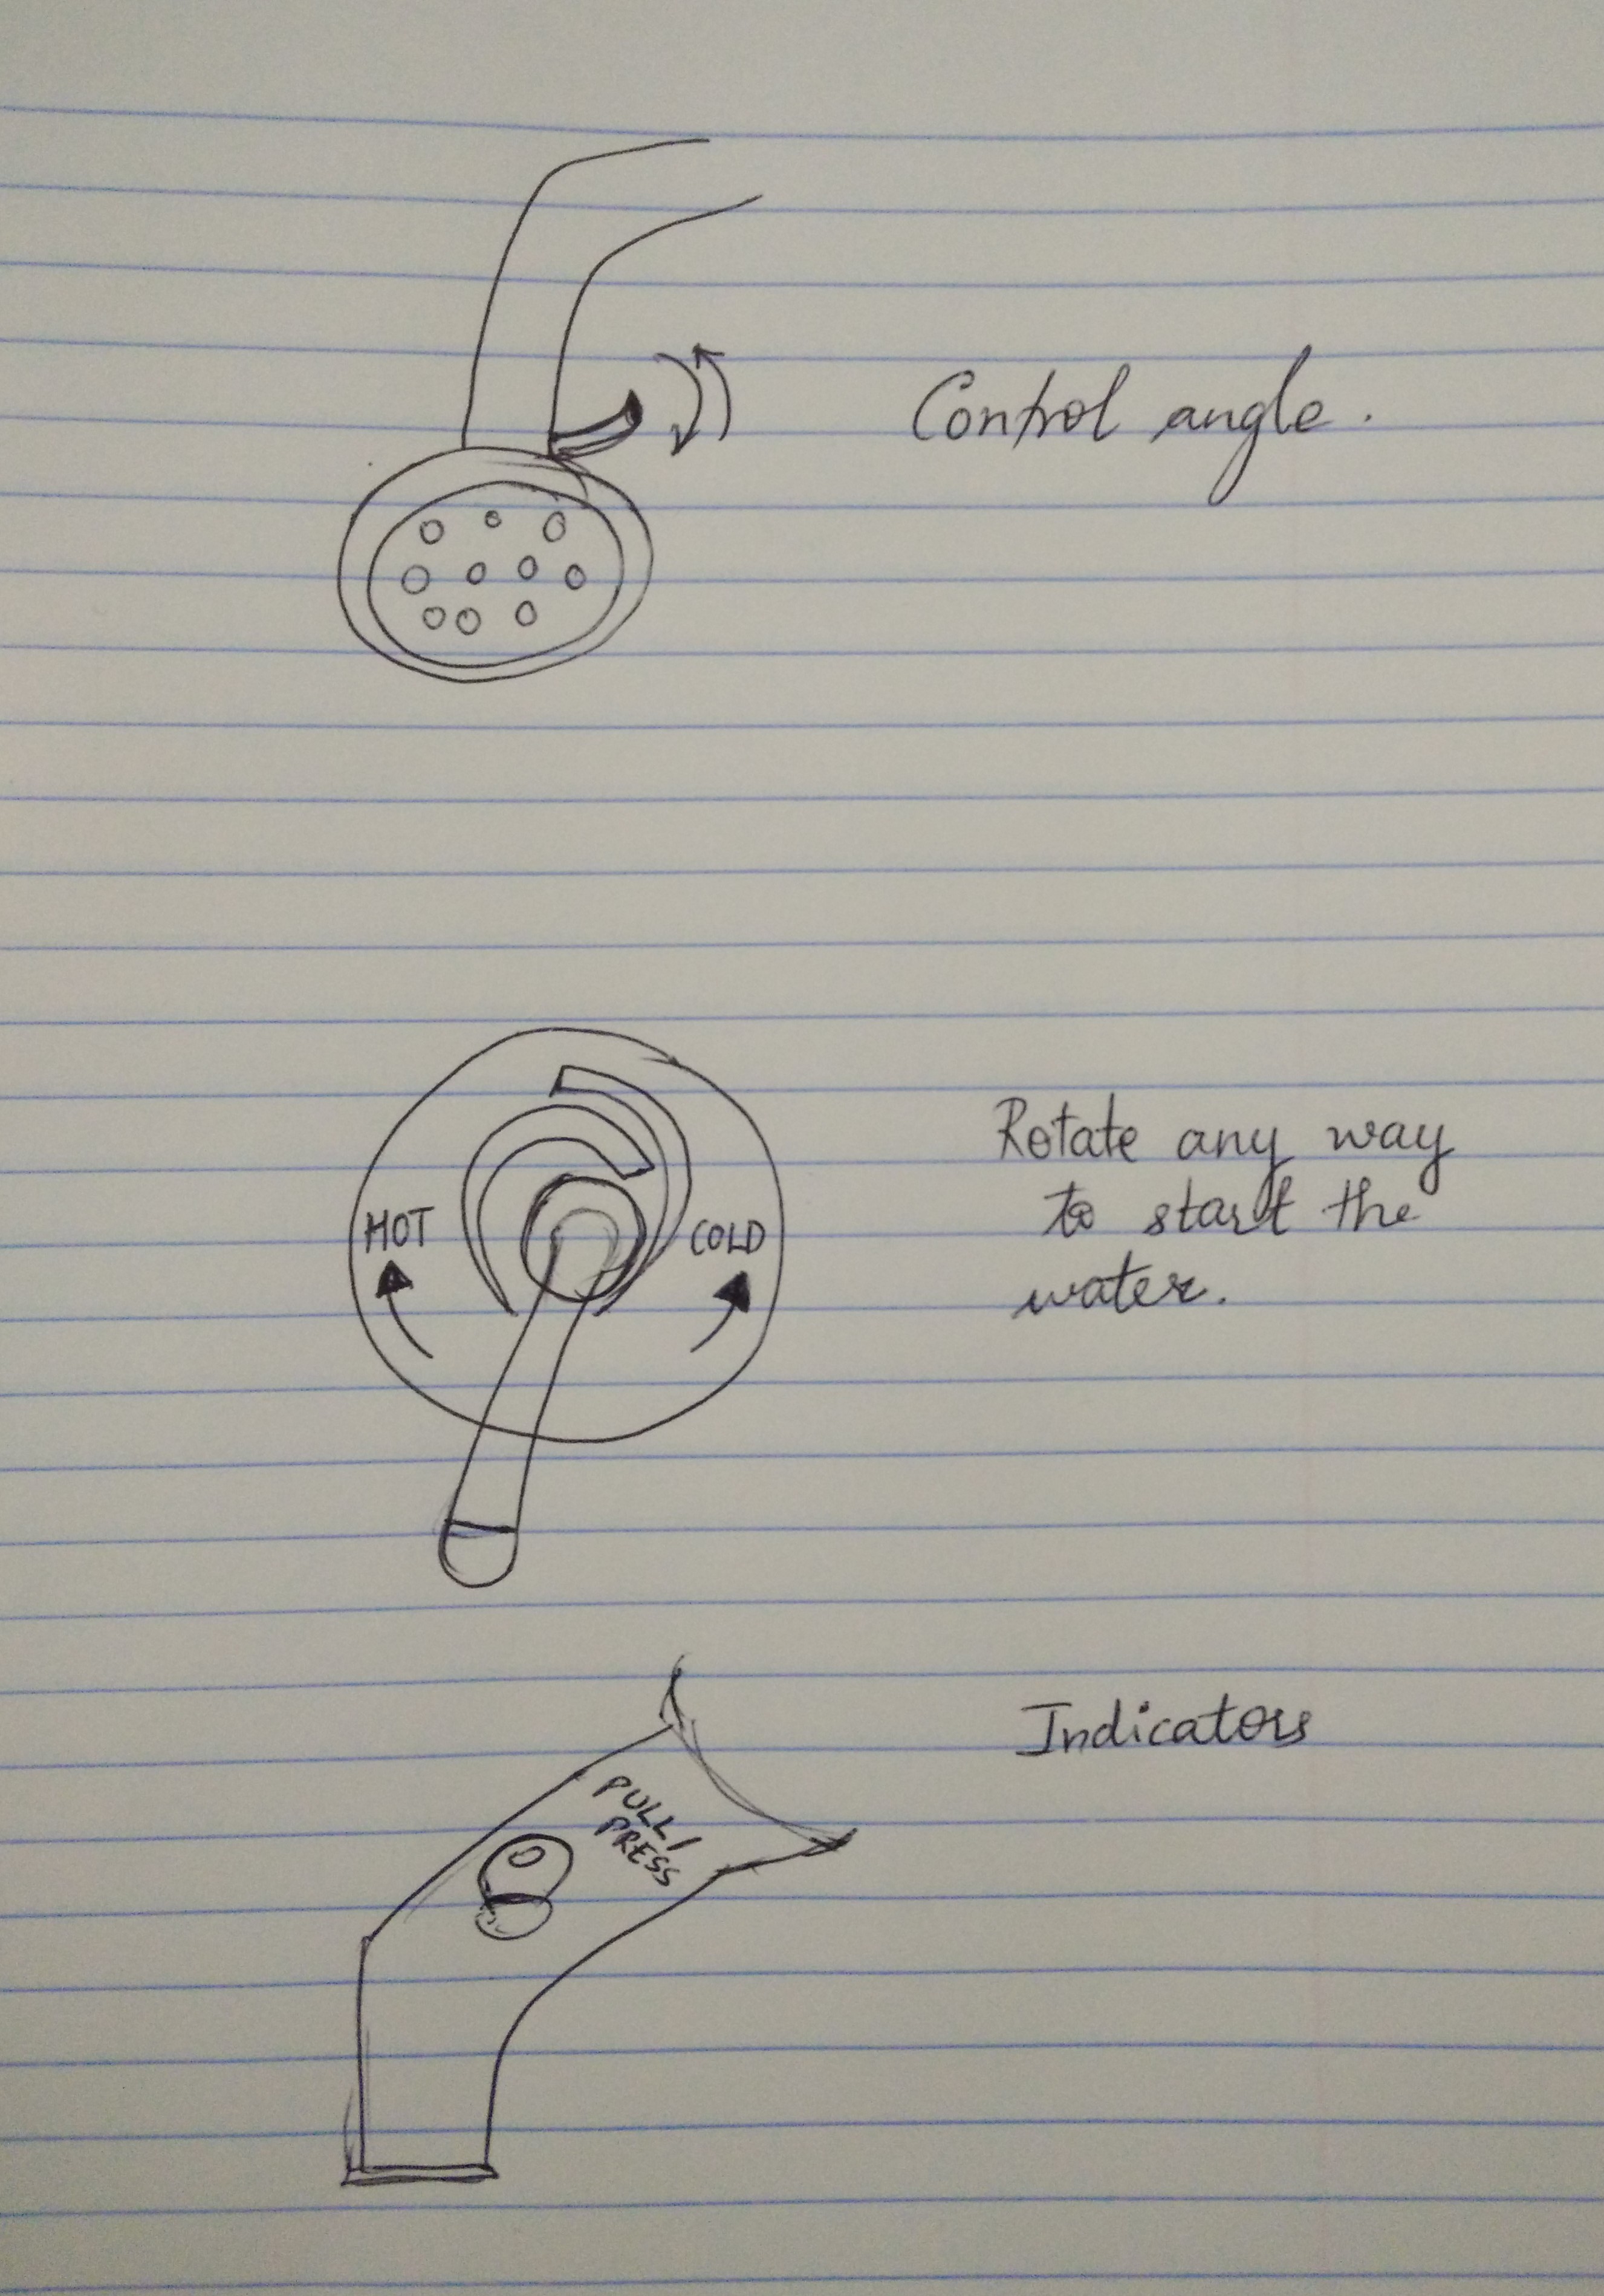 Control angle.
HOT
COLD
Rotate any way
to start the
water.
Indicators
PULL/
PRESS